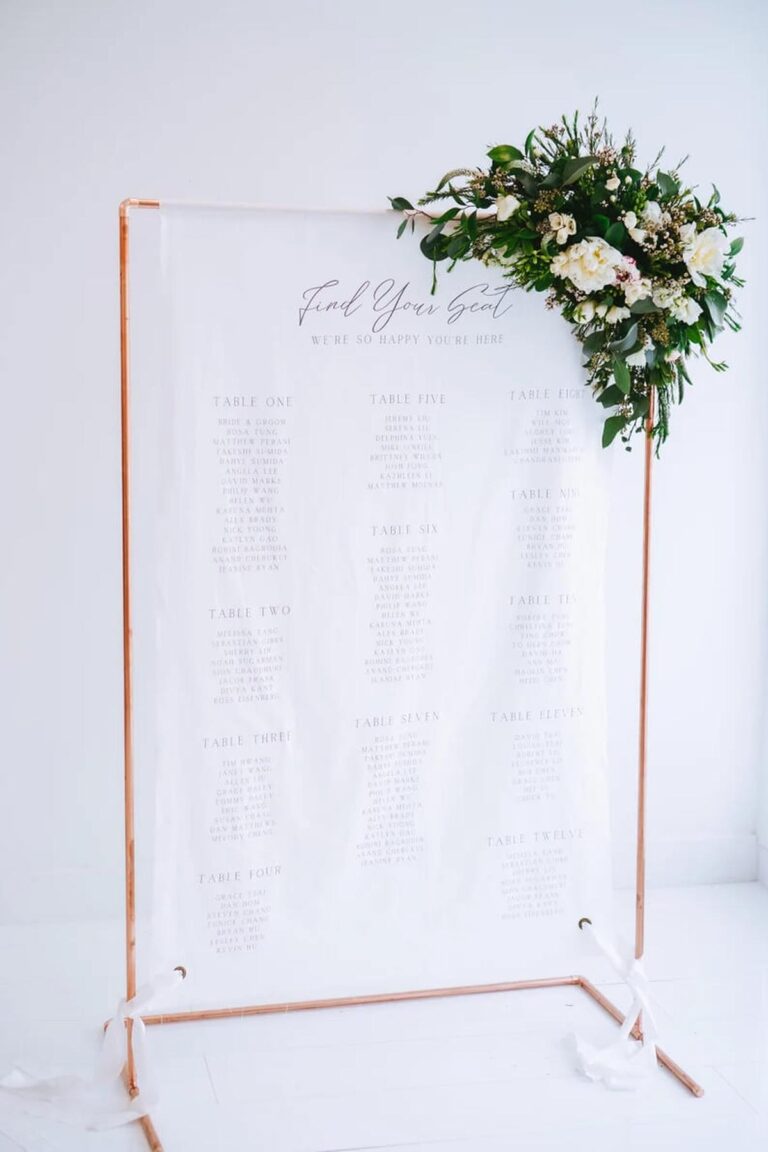 Find Your Seat
WE'RE SO HAPPY YOU'RE HERE
TABLE ONE
BRIDE & GROOM
ROSA TUNG
MATTHEW PERANI
TAKESHI SUMIDA
DAHYE SUMIDA
ANGELA LEE
DAVID MARKS
PHILIP WANG
HELEN WU
KARUNA MEHTA
ALEX BRADY
NICK YOONG
KATLYN GAO
ROHINI BAGRODIA
ANAND CHERUKUT
JEANINE RYAN
TABLE TWO
MELISSA TANG
SEBASTIAN GIBBS
SHERRY LIN
NOAH SUGARMAN
SION CHAUDHURI
JACOB PRASS
DIVYA KANT
ROSS EISENBERG
TABLE THREE
TIM HWANG
JANEY WANG
ALLEN LIU
GRACE DALEY
TOMMY DALEY
ERIC KANG
SUSAN CHANG
DAN MATTHEWS
MELODY CHENG
TABLE FOUR
GRACE TSAI
DAN HOM
STEVEN CHANG
EUNICE CHANG
BRYAN HU
LESLEY CHEN
KEVIN HU
TABLE FIVE
JEREMY LIU
SERENA LIU
DELPHINA YUEN
MIKE O'NEILL
BRITTNEY WILSON
JOSH FONG
KATHLEEN LI
MATTHEW MOLNAR
TABLE SIX
ROSA TUNG
MATTHEW PERANI
TAKESHI SUMIDA
DAHYE SUMIDA
ANGELA LEE
DAVID MARKS
PHILIP WANG
HELEN WU
KARUNA MEHTA
ALEX BRADY
NICK YOONG
KATLYN GAO
ROHINI BAGRODIA
ANAND CHERUKUT
JEANINE RYAN
TABLE SEVEN
ROSA TUNG
MATTHEW PERANI
TAKESHI SUMIDA
DAHYE SUMIDA
ANGELA LEE
DAVID MARKS
PHILIP WANG
HELEN WU
KARUNA MEHTA
ALEX BRADY
NICK YOONG
KATLYN GAO
ROHINI BAGRODIA
ANAND CHERUKUT
JEANINE RYAN
TABLE EIGHT
TIM KIM
JESSE KIM
TABLE NINE
GRACE TSAI
DAN HOM
STEVEN CHANG
EUNICE CHANG
BRYAN HU
LESLEY CHEN
KEVIN HU
TABLE TEN
DAVID HA
HEIDI CHEN
TABLE ELEVEN
DAVID TSAI
GRACE CHEN
TABLE TWELVE
MELISSA TANG
SEBASTIAN GIBBS
SHERRY LIN
NOAH SUGARMAN
SION CHAUDHURI
JACOB PRASS
DIVYA KANT
ROSS EISENBERG